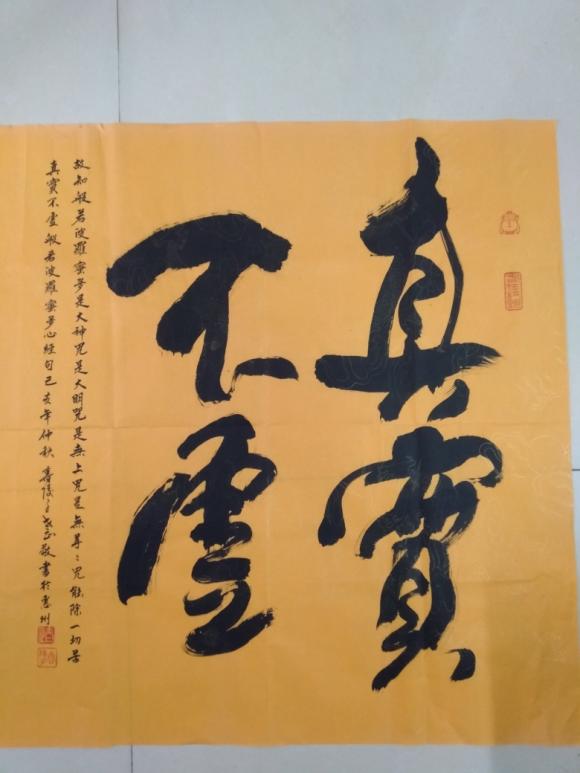 真實
不虛
故知般若波羅蜜多是大神咒是大明咒是無上咒是無等等咒能除一切苦
真實不虛般若波羅蜜多心經句己亥年仲秋敬書於惠州